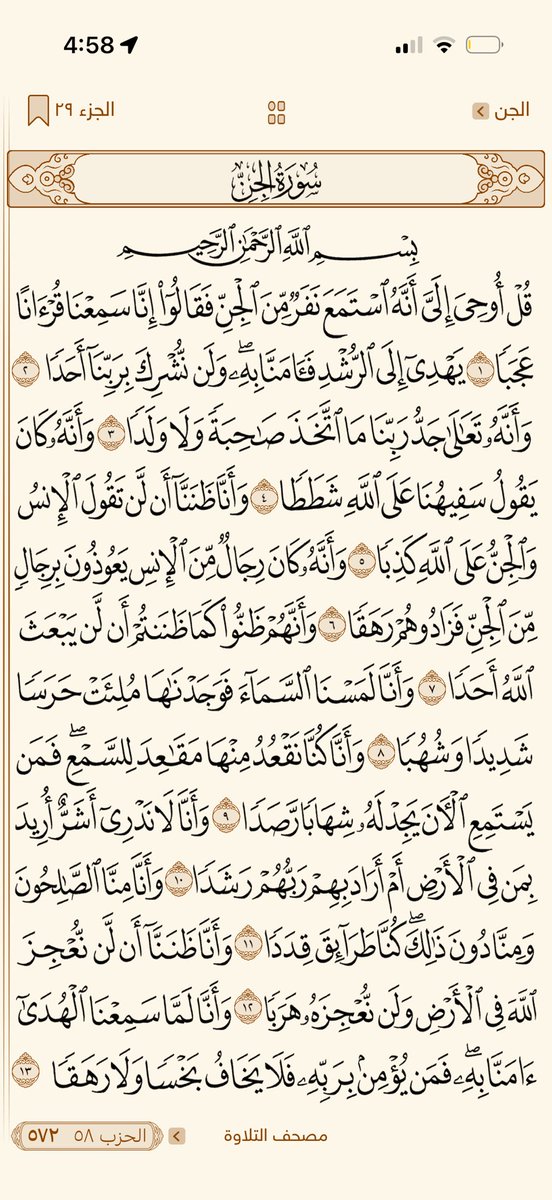 4:58
الجن
الجزء ٢٩
سُورَةُ الجِنِّ
بِسْمِ اللَّهِ الرَّحْمَٰنِ الرَّحِيمِ
قُلْ أُوحِىَ إِلَىَّ أَنَّهُ ٱسْتَمَعَ نَفَرٌ مِّنَ ٱلْجِنِّ فَقَالُوٓا۟ إِنَّا سَمِعْنَا قُرْءَانًا
عَجَبًا ١ يَهْدِىٓ إِلَى ٱلرُّشْدِ فَـَٔامَنَّا بِهِۦ ۖ وَلَن نُّشْرِكَ بِرَبِّنَآ أَحَدًا ٢
وَأَنَّهُۥ تَعَٰلَىٰ جَدُّ رَبِّنَا مَا ٱتَّخَذَ صَٰحِبَةً وَلَا وَلَدًا ٣ وَأَنَّهُۥ كَانَ
يَقُولُ سَفِيهُنَا عَلَى ٱللَّهِ شَطَطًا ٤ وَأَنَّا ظَنَنَّآ أَن لَّن تَقُولَ ٱلْإِنسُ
وَٱلْجِنُّ عَلَى ٱللَّهِ كَذِبًا ٥ وَأَنَّهُۥ كَانَ رِجَالٌ مِّنَ ٱلْإِنسِ يَعُوذُونَ بِرِجَالٍ
مِّنَ ٱلْجِنِّ فَزَادُوهُمْ رَهَقًا ٦ وَأَنَّهُمْ ظَنُّوا۟ كَمَا ظَنَنتُمْ أَن لَّن يَبْعَثَ
ٱللَّهُ أَحَدًا ٧ وَأَنَّا لَمَسْنَا ٱلسَّمَآءَ فَوَجَدْنَٰهَا مُلِئَتْ حَرَسًا
شَدِيدًا وَشُهُبًا ٨ وَأَنَّا كُنَّا نَقْعُدُ مِنْهَا مَقَٰعِدَ لِلسَّمْعِ ۖ فَمَن
يَسْتَمِعِ ٱلْـَٔانَ يَجِدْ لَهُۥ شِهَابًا رَّصَدًا ٩ وَأَنَّا لَا نَدْرِىٓ أَشَرٌّ أُرِيدَ
بِمَن فِى ٱلْأَرْضِ أَمْ أَرَادَ بِهِمْ رَبُّهُمْ رَشَدًا ١٠ وَأَنَّا مِنَّا ٱلصَّٰلِحُونَ
وَمِنَّا دُونَ ذَٰلِكَ ۖ كُنَّا طَرَآئِقَ قِدَدًا ١١ وَأَنَّا ظَنَنَّآ أَن لَّن نُّعْجِزَ
ٱللَّهَ فِى ٱلْأَرْضِ وَلَن نُّعْجِزَهُۥ هَرَبًا ١٢ وَأَنَّا لَمَّا سَمِعْنَا ٱلْهُدَىٰٓ
ءَامَنَّا بِهِۦ ۖ فَمَن يُؤْمِنۢ بِرَبِّهِۦ فَلَا يَخَافُ بَخْسًا وَلَا رَهَقًا ١٣
مصحف التلاوة
الحزب ٥٨ ٥٧٢